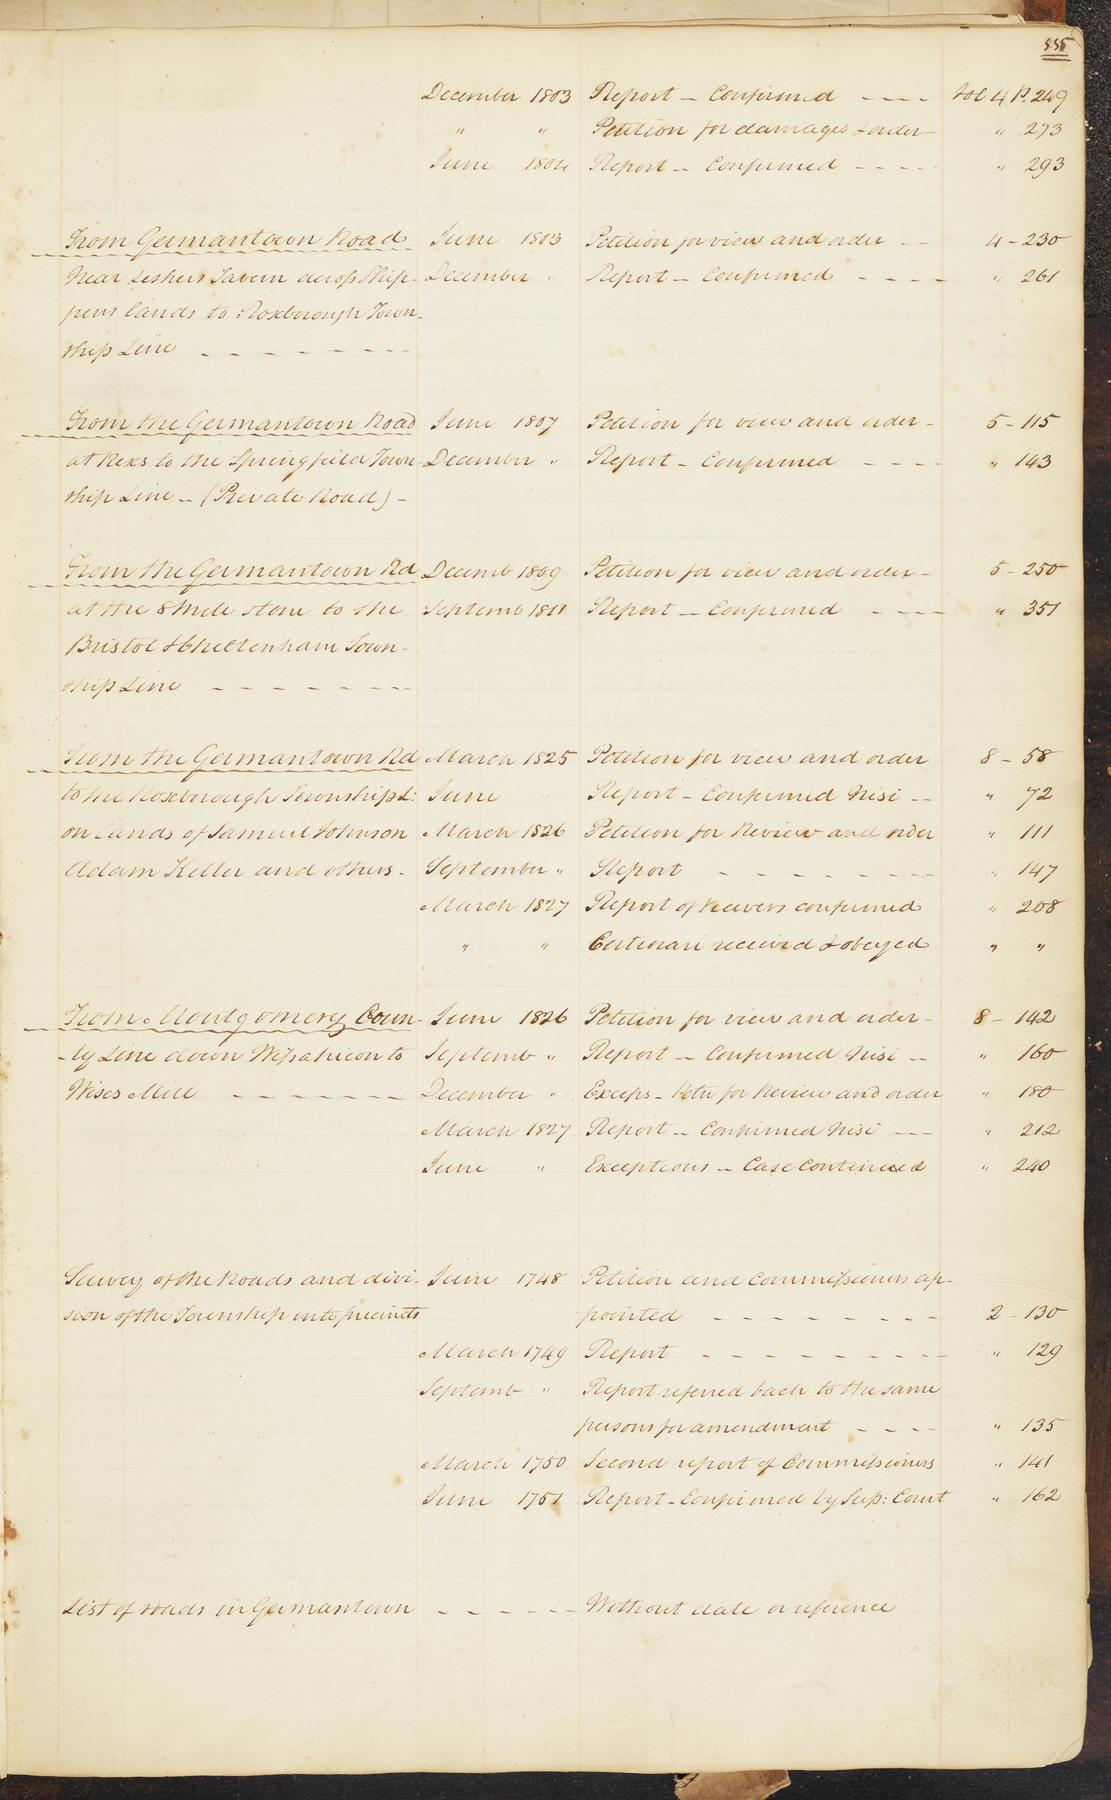 555
December 1803 Report - Confirmed - - - - Vol 4 P. 249
" " Petition for damages & order - " 273
June 1804 Report - Confirmed - - - - " 293
From Germantown Road June 1803 Petition for view and order - - 4 - 230
Near Leshers Tavern across Ship- December " Report - Confirmed - - - - " 261
pens lands to Roxborough Town-
ship Line - - - - - - - -
From the Germantown Road June 1807 Petition for view and order - 5 - 115
at Rexs to the Springfield Town- December " Report - Confirmed - - - - " 143
ship Line - (Private Road) -
From the Germantown Rd Decemb 1809 Petition for view and order - 5 - 250
at the 8 Mile stone to the Septemb 1811 Report - Confirmed - - - - " 351
Bristol & Cheltenham Town-
ship Line - - - - - - - -
From the Germantown Rd March 1825 Petition for view and order 8 - 58
to the Roxborough Township L: June " Report - Confirmed Nisi - - " 72
on lands of Samuel Johnson March 1826 Petition for Review and order " 111
Adam Keller and others - September " Report - - - - - - - - " 147
March 1827 Report of Viewers confirmed " 208
" " Certiorari received & obeyed " "
From Montgomery Coun- June 1826 Petition for view and order - 8 - 142
-ty Line down Wissahicon to Septemb " Report - Confirmed Nisi - - " 160
Wises Mill - - - - - - - December " Exceps - Petn for Review and order " 180
March 1827 Report - Confirmed Nisi - - " 212
June " Exceptions - Case Continued " 240
Survey of the Roads and divi- June 1748 Petition and Commissioners ap-
sion of the Township into precincts pointed - - - - - - - - 2 - 130
March 1749 Report - - - - - - - - - " 129
Septemb " Report referred back to the same
persons for amendment - - - - " 135
March 1750 Second report of Commissioners " 141
June 1751 Report - Confirmed by Sup: Court " 162
List of roads in Germantown - - - - - Without date or reference